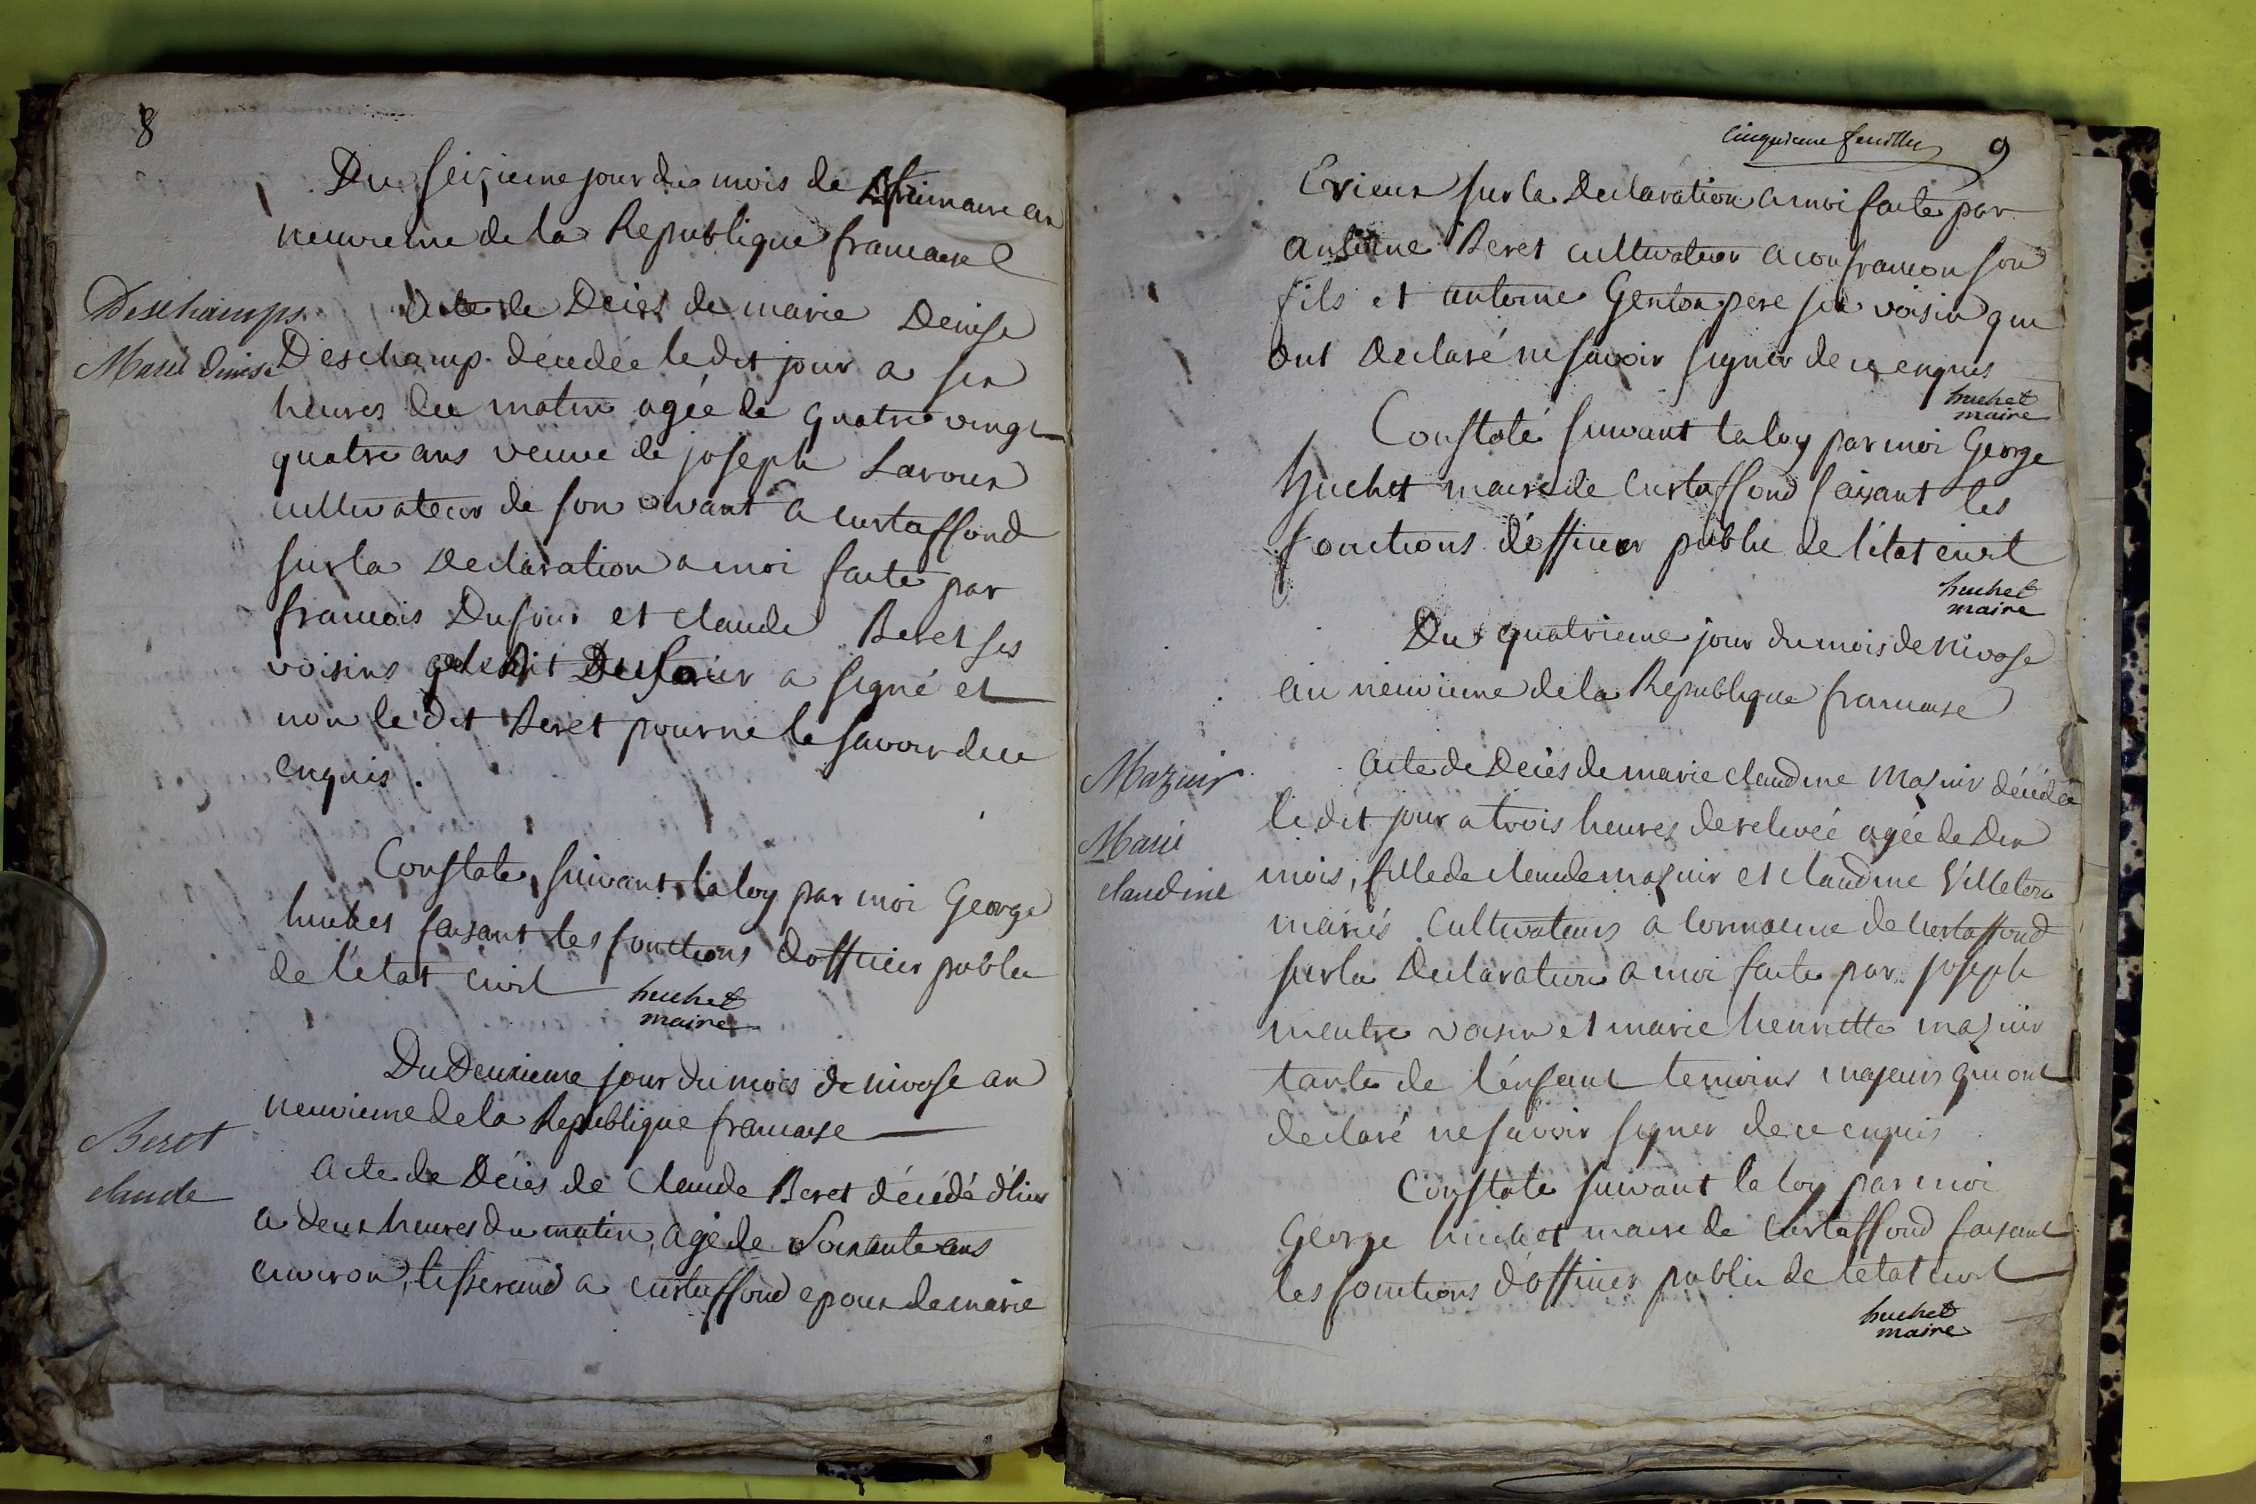 8
Du seizieme jour du mois de frimaire an
neuvieme de la Republique francaise
Deschamps
Marie denise
Acte de Décès de marie Denise
Deschamp décedée ledit jour a six
heures du matin agée de quatre vingt
quatre ans veuve de joseph Savoux
cultivateur de son vivant a curtaffond
sur la Declaration a moi faite par
francois Dufour et claude Beret ses
voisins Dufour a signé et
non le dit Beret pour ne le savoir de ce
enquis.
Constaté suivant la loy par moi George
huchet faisant les fonctions d'officier public
de l'état civil
huchet
maire
Du Deuxieme jour du mois de nivose an
neuvieme de la Republique francaise
Beret
claude
Acte de Décès de Claude Beret décédé d'hier
a deux heures du matin, agé de Soixante ans
environ, tisserand a curtaffond epoux de marie
cinquieme feuillet 9
Evieux sur la Declaration a moi faite par
antoine Beret cultivateur a confrancon son
fils et antoine Genton pere son voisin qui
ont Declaré ne savoir signer de ce enquis
huchet
maire
Constaté suivant la loy par moi George
huchet maire de curtaffond faisant les
fonctions d'officier public de l'état civil
huchet
maire
Du quatrieme jour du mois de nivose
an neuvieme de la Republique francaise
Mazuir
Marie
claudine
acte de Décès de marie claudine Masuir décédée
le dit jour a trois heures de relevée agée de Dix
mois, fille de claude masuir et claudine Villeton
mariés cultivateurs a cormaeine de curtaffond
sur la Declaration a moi faite par joseph
meutre voisin et marie henriette masuir
tante de l'enfant temoins majeurs qui ont
declaré ne savoir signer de ce enquis
Constaté suivant la loy par moi
George huchet maire de Curtaffond faisant
les fonctions d'officier public de l'etat civil
huchet
maire